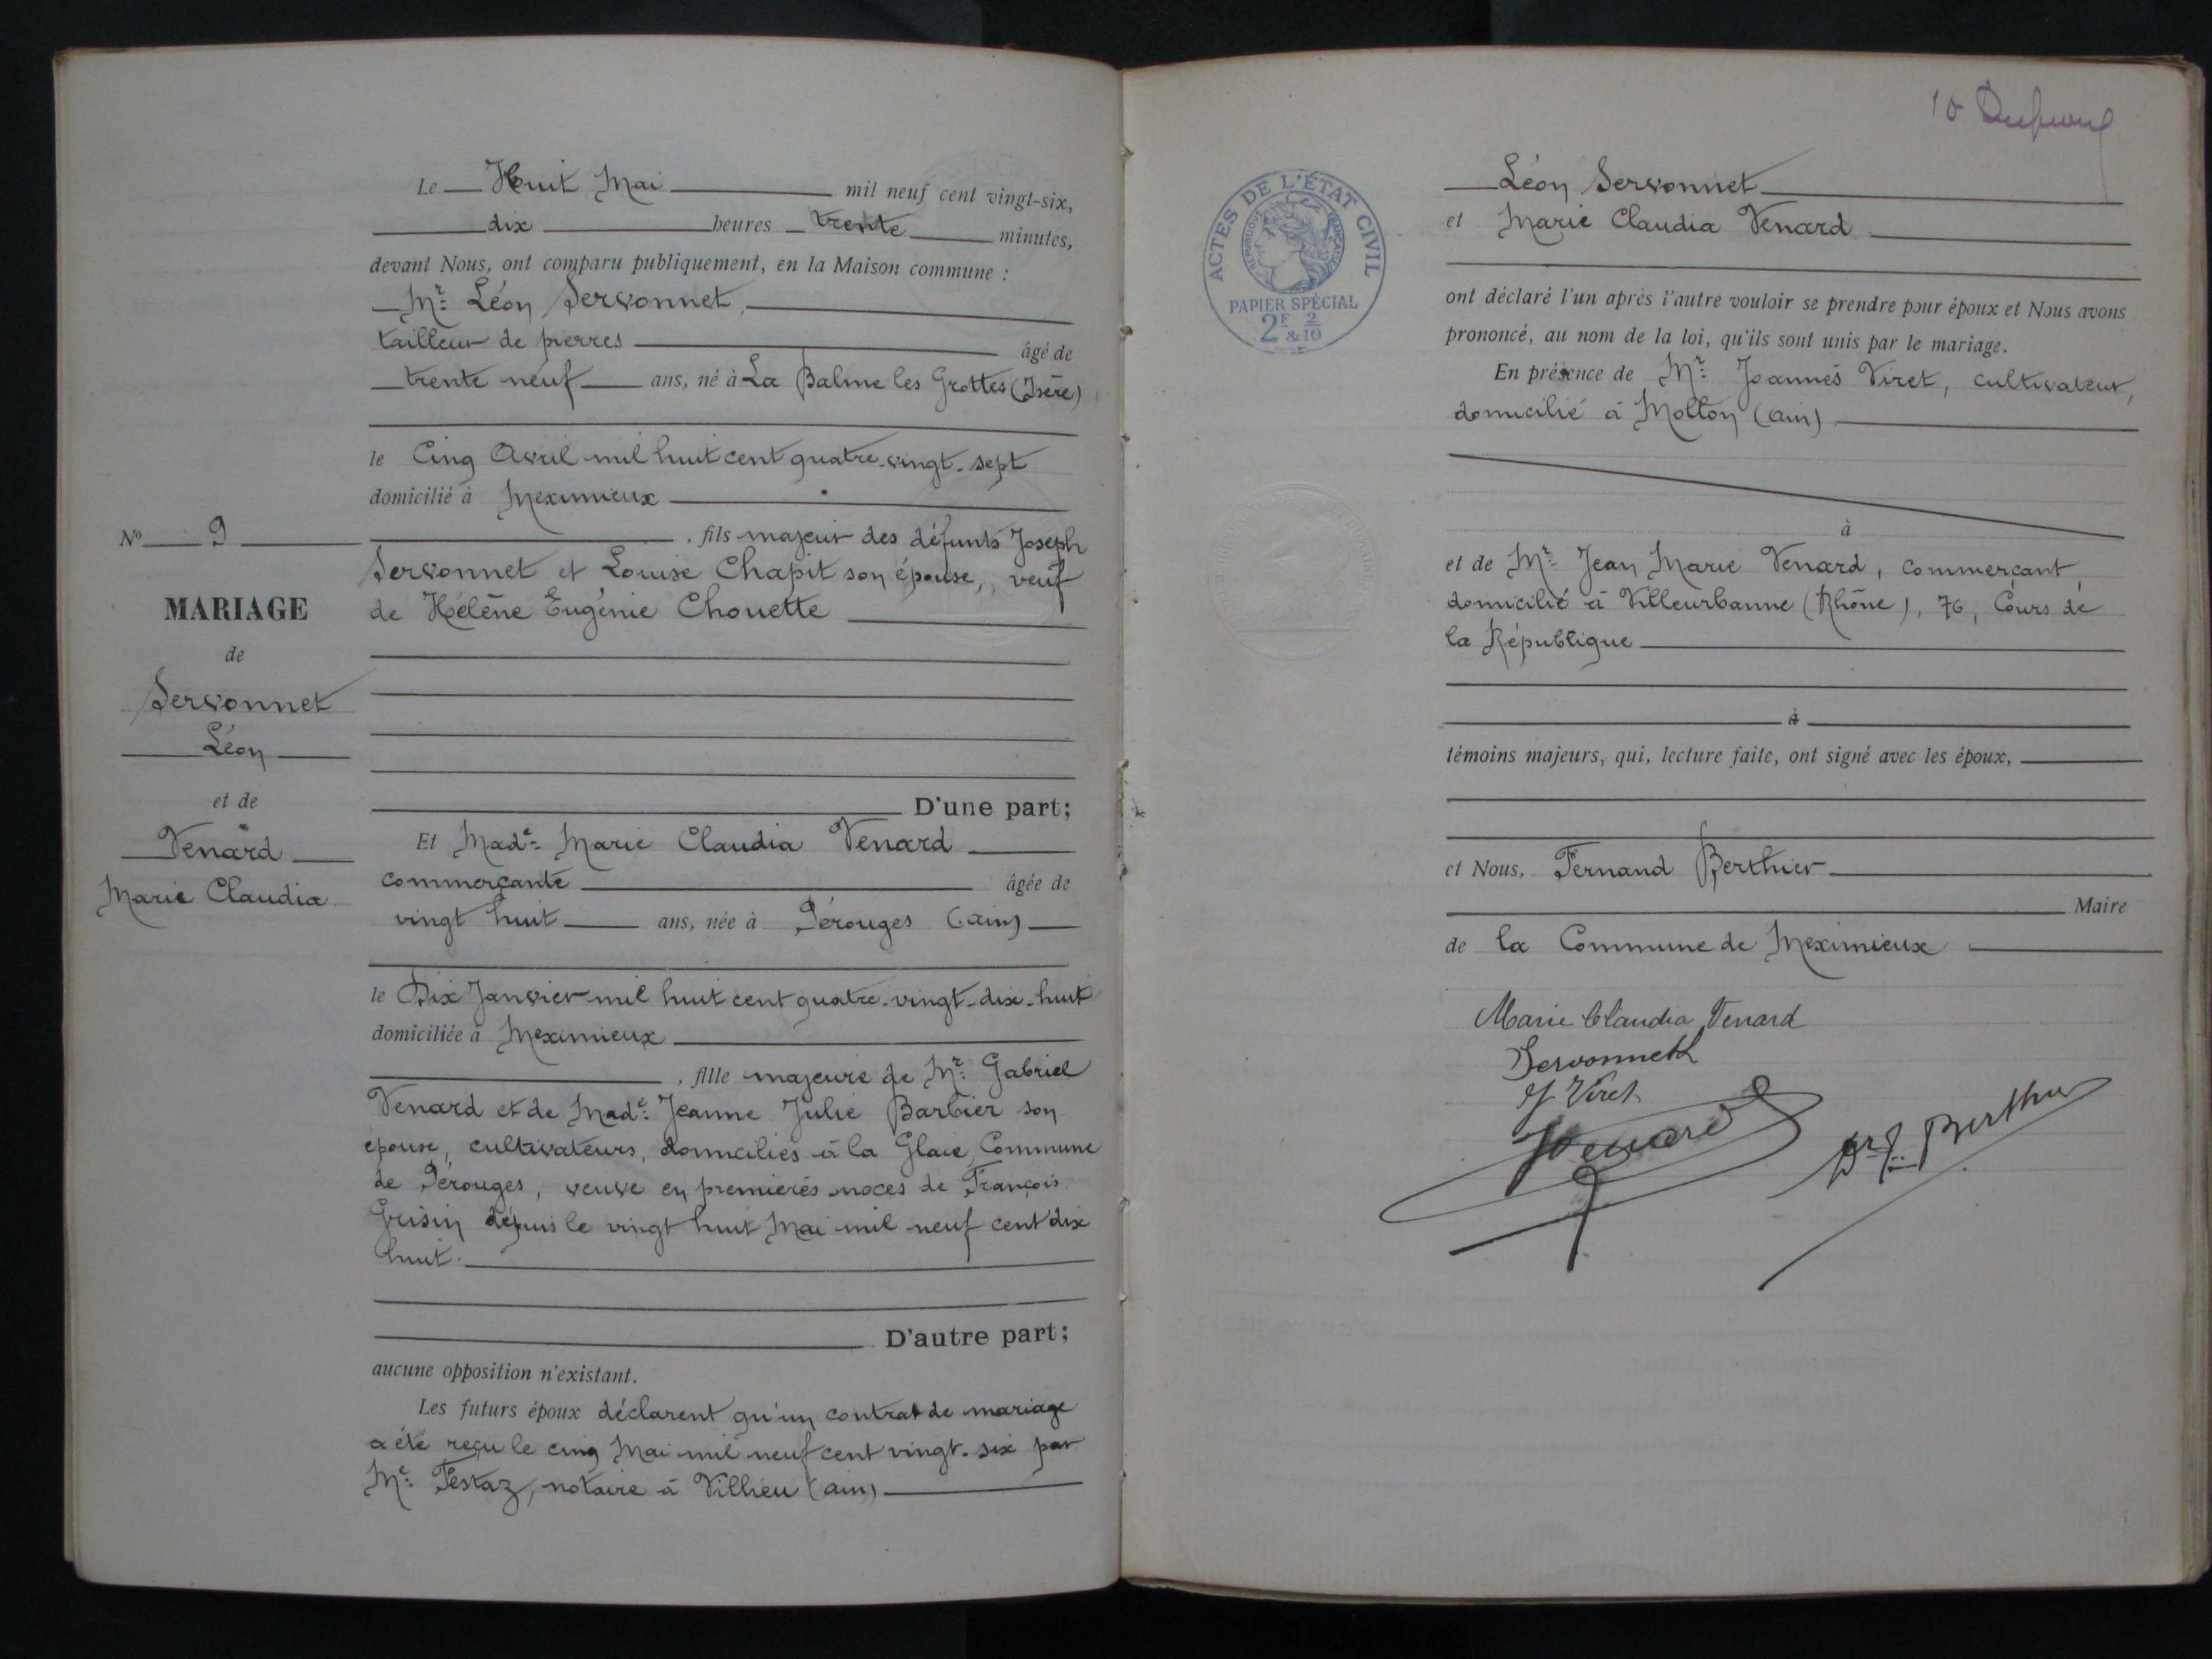 Le Huit Mai mil neuf cent vingt-six,
dix heures trente minutes,
devant Nous, ont comparu publiquement, en la Maison commune :
Mr: Léon Servonnet
tailleur de pierres âgé de
trente neuf ans, né à La Balme les Grottes (Isère)
le Cinq Avril mil huit cent quatre-vingt-sept
domicilié à Meximieux
, fils majeur des défunts Joseph
Servonnet et Louise Chapit son épouse, veuf
de Hélène Eugénie Chouette
D'une part;
Et Made: Marie Claudia Venard
commerçante âgée de
vingt huit ans, née à Pérouges (Ain)
le Dix Janvier mil huit cent quatre-vingt-dix-huit
domiciliée à Meximieux
, fille majeure de Mr: Gabriel
Venard et de Made: Jeanne Julie Barbier son
épouse, cultivateurs, domiciliés à la Glaie, Commune
de Pérouges, veuve en premières noces de François
Grisin depuis le vingt huit Mai mil neuf cent dix
huit.
D'autre part;
aucune opposition n'existant.
Les futurs époux déclarent qu'un contrat de mariage
a été reçu le cinq Mai mil neuf cent vingt-six par
Me: Testaz, notaire à Villieu (ain)
No 9
MARIAGE
de
Servonnet
Léon
et de
Venard
Marie Claudia
10
ACTES DE L'ÉTAT CIVIL
RÉPUBLIQUE FRANÇAISE
PAPIER SPÉCIAL
2F & 2/10
Léon Servonnet
et Marie Claudia Venard
ont déclaré l'un après l'autre vouloir se prendre pour époux et Nous avons
prononcé, au nom de la loi, qu'ils sont unis par le mariage.
En présence de Mr: Joannès Viret, cultivateur,
domicilié à Mollon (ain)
à
et de Mr: Jean Marie Venard, commerçant,
domicilié à Villeurbanne (Rhône), 76, Cours de
la République
à
témoins majeurs, qui, lecture faite, ont signé avec les époux,
et Nous, Fernand Berthier
Maire
de la Commune de Meximieux
Marie Claudia Venard
Servonnet L
J Viret
JVenard
Dr F. Berthier